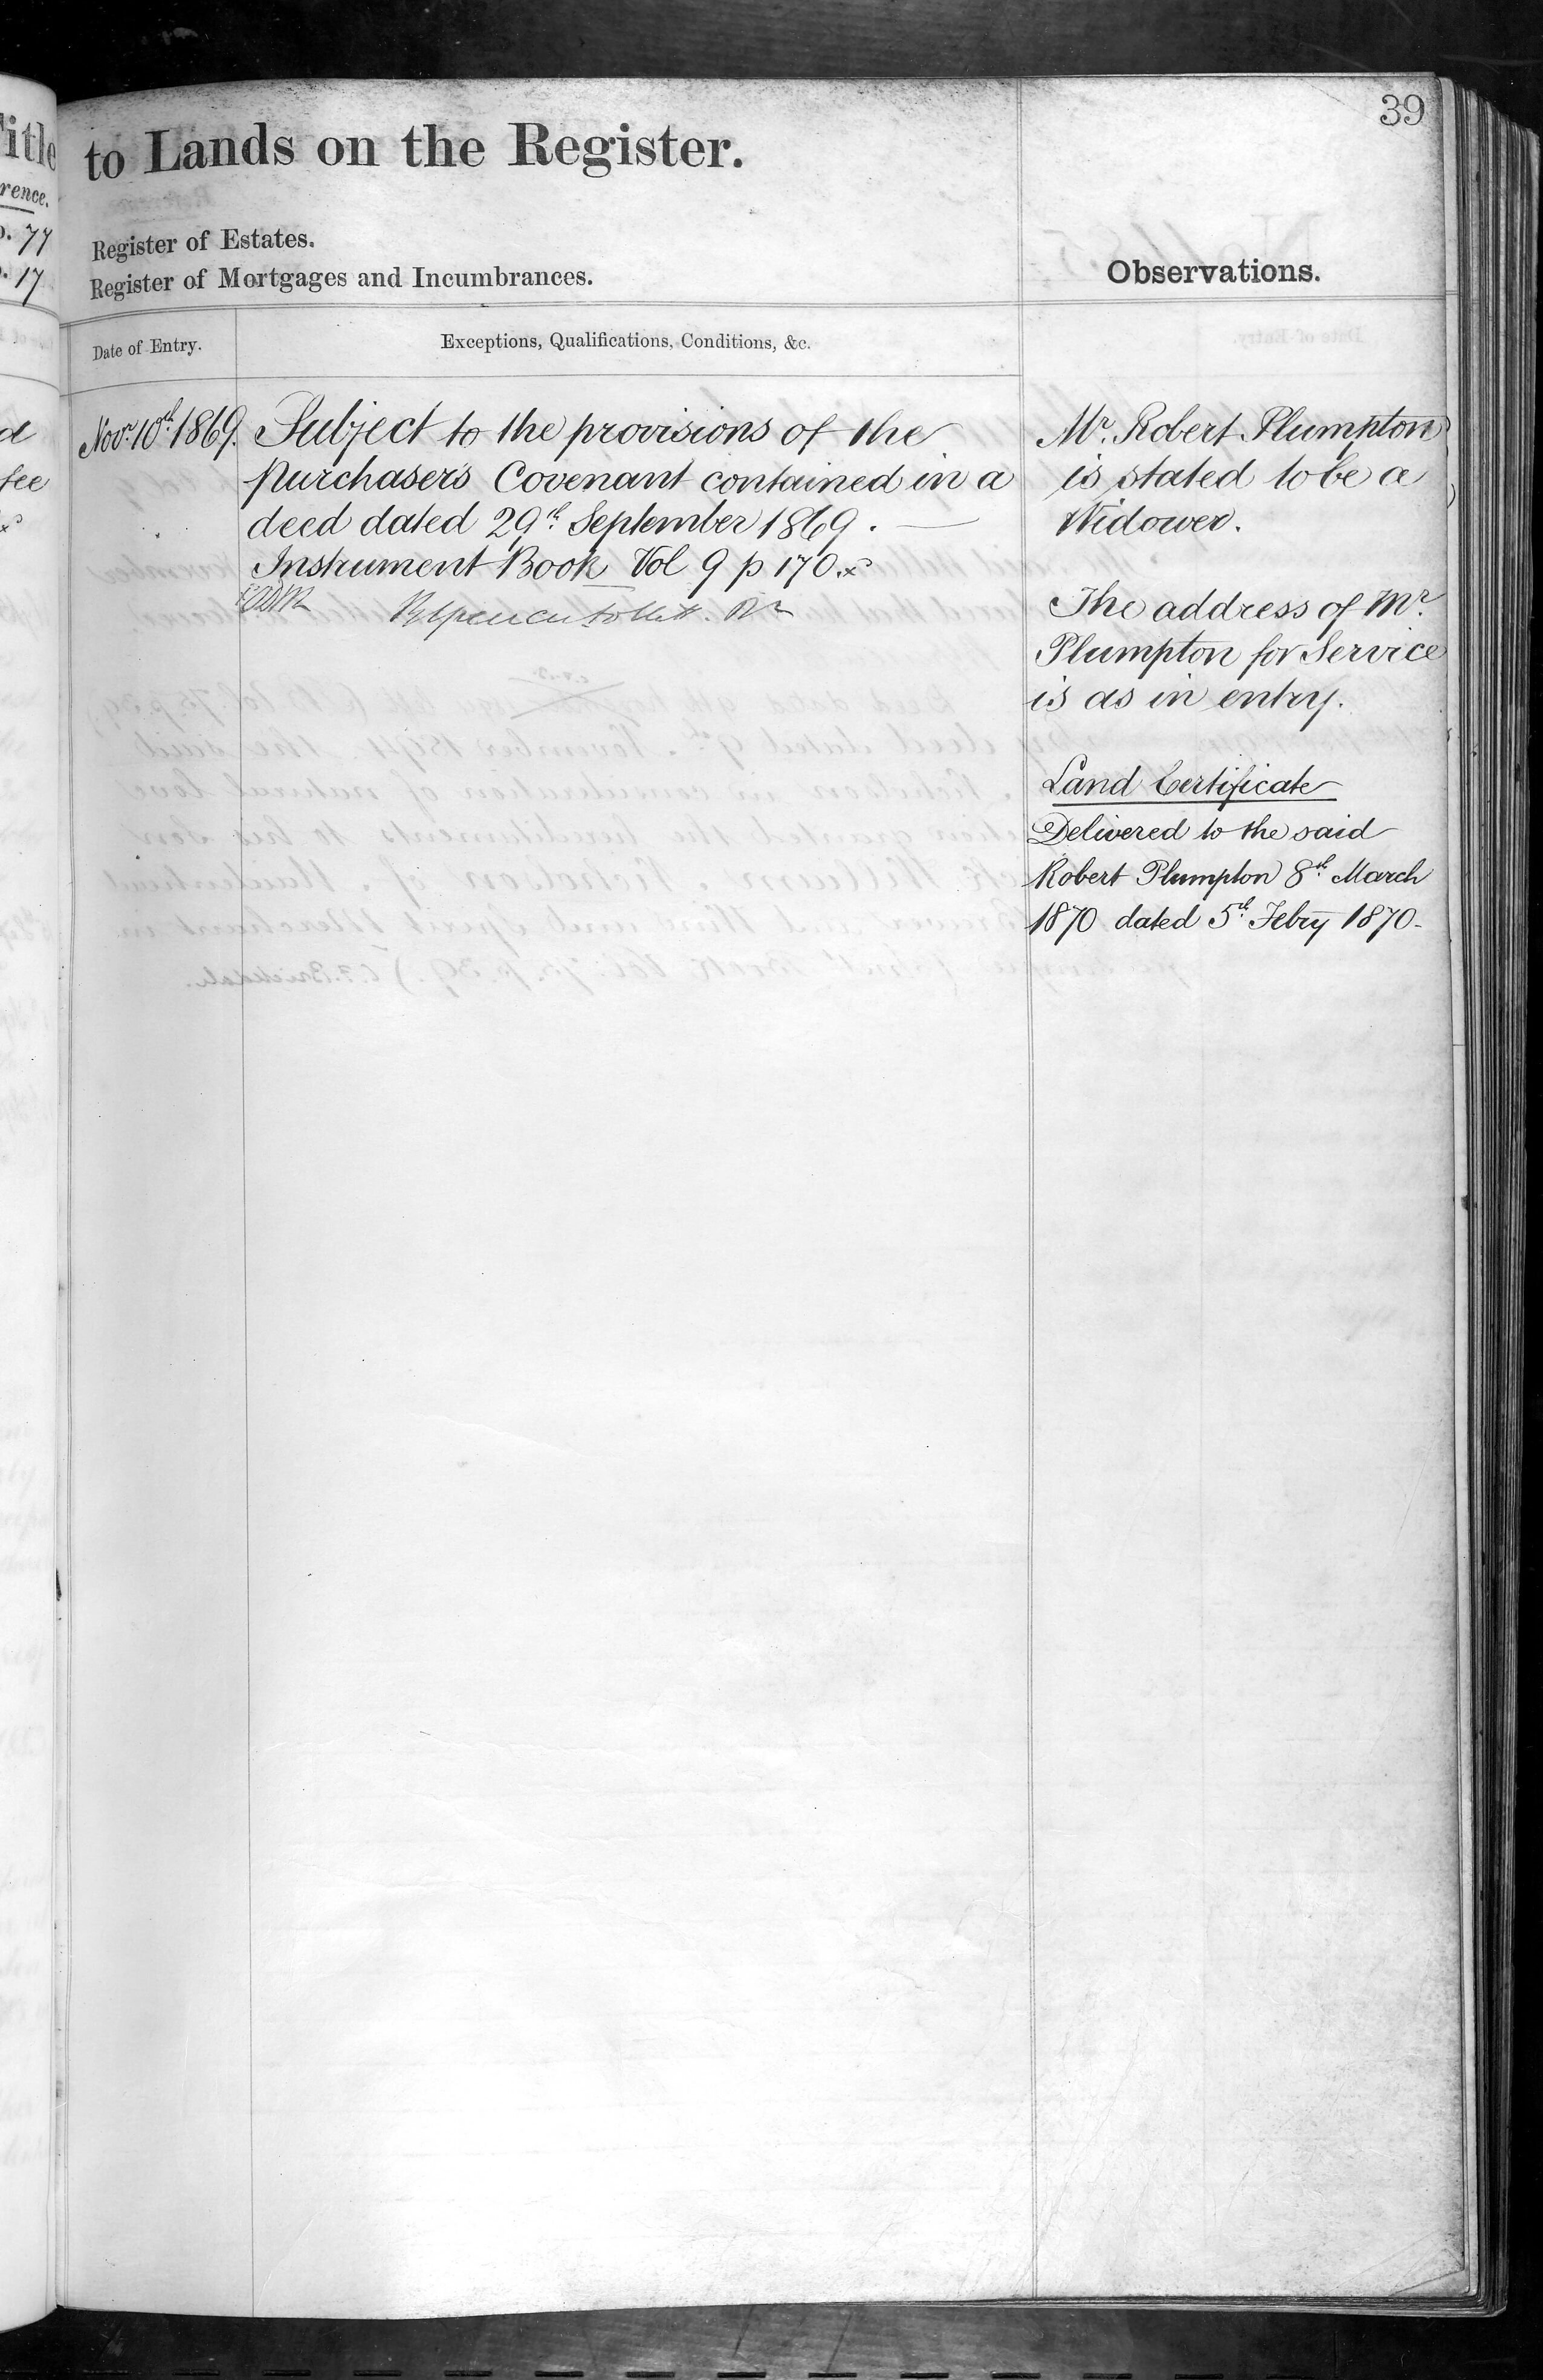 39
to Lands on the Register.
Register of Estates.
Register of Mortgages and Incumbrances.
Observations.
Date of Entry.
Exceptions, Qualifications, Conditions, &c.
Novr. 10th. 1869.
Subject to the provisions of the
purchasers Covenant contained in a
deed dated 29th. September 1869. —
Instrument Book Vol 9 p 170.
Mr. Robert Plumpton
is stated to be a
Widower.
The address of Mr.
Plumpton for Service
is as in entry.
Land Certificate
Delivered to the said
Robert Plumpton 8th. March
1870 dated 5th. Febry 1870.